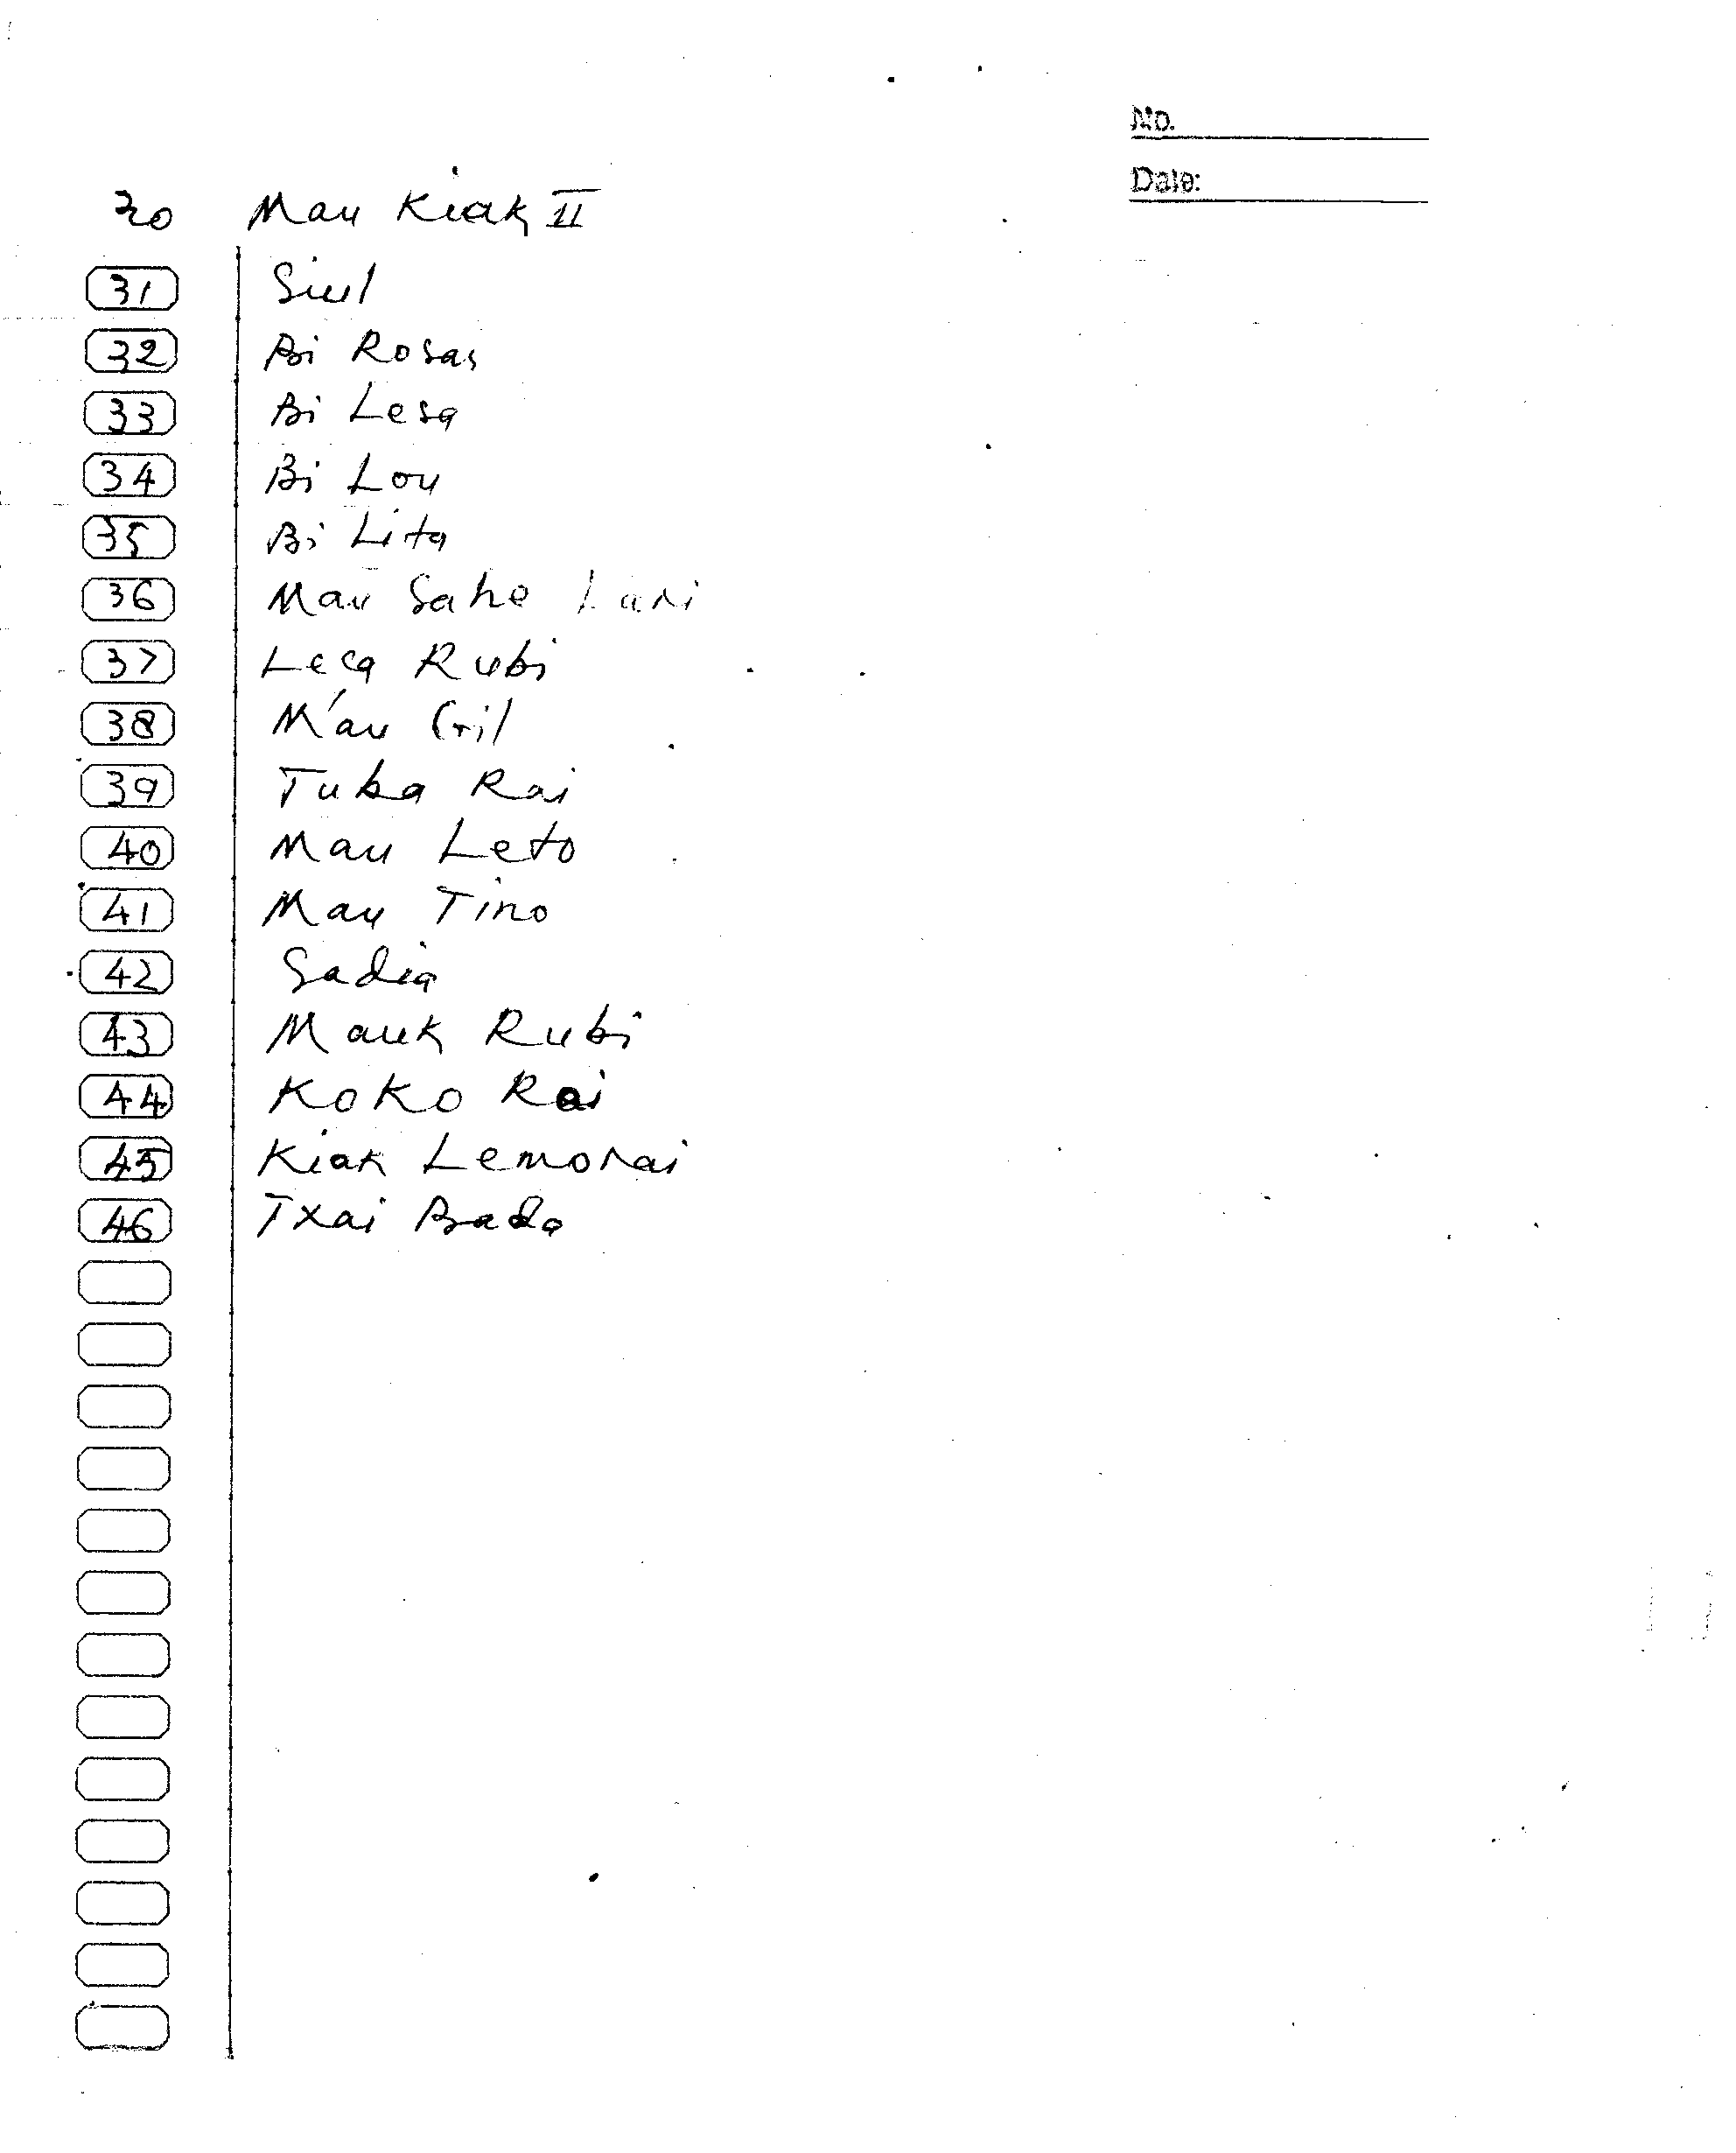 No.
Date:
30 Mau Kiak II
31 Siul
32 Bi Rosas
33 Bi Lesa
34 Bi Lou
35 Bi Lita
36 Mau Sahe Lari
37 Leca Rubi
38 Mau Gil
39 Tuba Rai
40 Mau Leto
41 Mau Tino
42 Sadia
43 Mauk Rubi
44 Koko Rai
45 Kiak Lemorai
46 Txai Bada